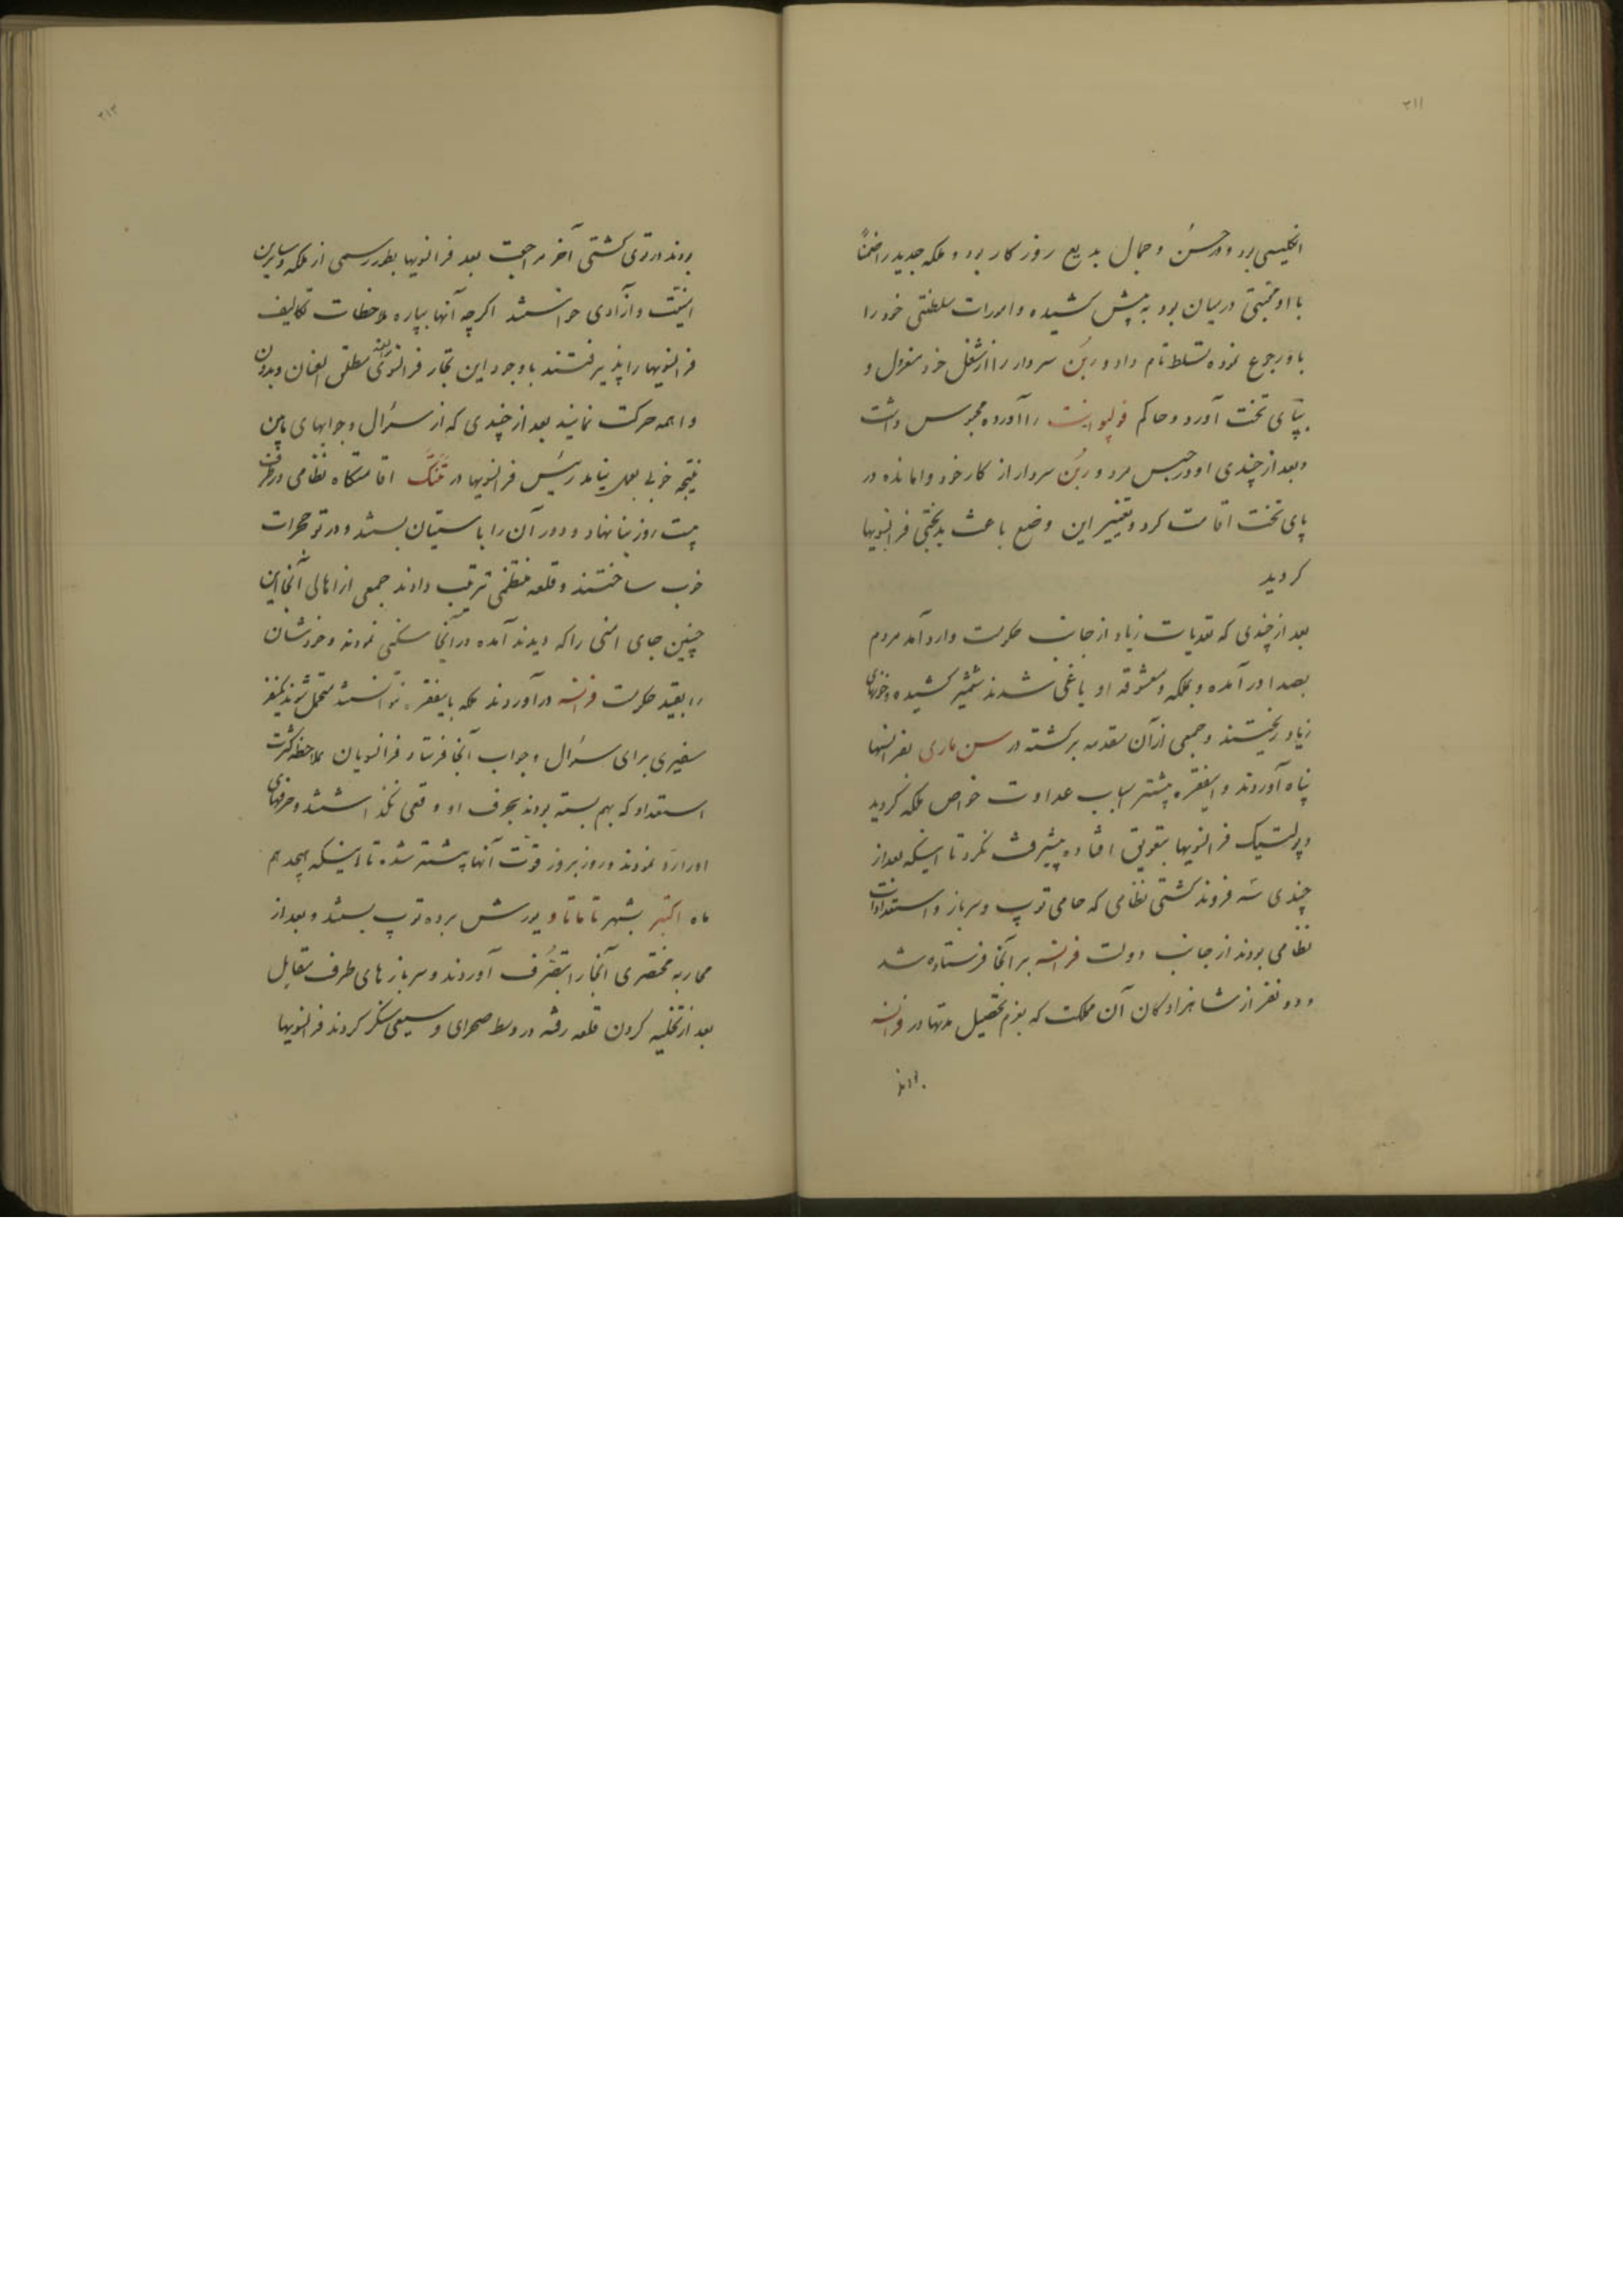 ۲۱۱
انکلیسی بود و در حسُن و جمال بدیع روزکار بود و ملکه جدید را ضمناً
با او محبتی در میان بود به پیش کشیده و امورات سلطنتی خود را
باو رجوع نموده تسلط تام داد و ربُن سردار را از شغل خود معزول و
بپای تخت آورد و حاکم فولپواینت را آورده محبوس داشت
و بعد از چندی او در حبس مرد و ربُن سردار از کار خود وامانده در
پای تخت اقامت کرد و تغییر این وضع باعث بدبختی فرانسویها
کردید
بعد از چندی که تعدیات زیاد از جانب حکومت وارد آمد مردم
بصدا در آمده و بملکه و معشوقه او یاغی شدند شمشیر کشیده و خونهای
زیاد ریختند و جمعی از آن مقدمه برکشته در سن ماری بفرانسها
پناه آوردند و اینفقره بیشتر اسباب عداوت خواص ملکه کردید
و پولتیک فرانسویها بتعویق افتاده پیشرفت نکرد تا اینکه بعد از
چندی سه فروند کشتی نظامی که حامی توپ و سرباز و استعدادات
نظامی بودند از جانب دولت فرانسه بر آنجا فرستاده شد
و دو نفر از شاهزادکان آن مملکت که بعزم تحصیل مدتها در فرانسه
بودند
۲۱۲
بودند در توی کشتی آخر مراجعت بعد فرانسویها بطور رسمی از ملکه و سایرین
امنیت و آزادی خواستند اکرچه آنها بپاره ملاحظات تکالیف
فرانسویها را پذیرفتند باوجود این تجار فرانسوی مطلق العنان و بدون
واهمه حرکت نمایند بعد از چندی که از سئوال و جوابهای مابین
نتیجه خوبی بعمل نیامد رئیس فرانسویها در تَنتَنک اقامتکاه نظامی در ظرف
بیست روز بنا نهاد و دور آن را باستیان بستند و در تو حجرات
خوب ساختند و قلعه منظمی ترتیب دادند جمعی از اهالی آنجا این
چنین جای امنی را که دیدند آمده در آنجا سکنی نمودند و خودشان
را بقید حکومت فرانسه در آوردند ملکه باینفقره نتوانستند متحمل شوند یکنفر
سفیری برای سئوال و جواب آنجا فرستاد فرانسویان بملاحظه کثرت
استعداد که بهم بسته بودند بحرف او وقعی نکذاشتند و حرفهای
او را رَد نمودند و روز بروز قوّت آنها بیشتر شده تا اینکه هیجدهم
ماه اکتبر بشهر تاماتاو یورش برده توپ بستند و بعد از
محاربه مختصری آنجا را بتصرُف آوردند و سربازهای طرف مقابل
بعد از تخلیه کردن قلعه رفته در وسط صحرای وسیعی سنکر کردند فرانسویها